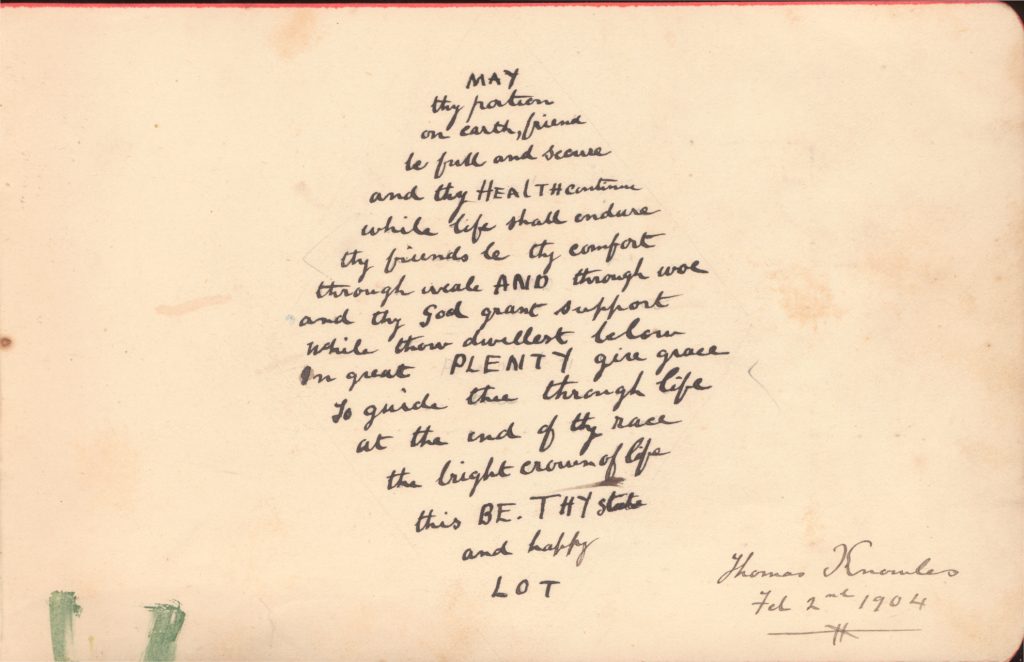 MAY
thy portion
on earth, friend
be full and secure
and thy HEALTH continue
while life shall endure
thy friends be thy comfort
through weale AND through woe
and thy God grant support
While thou dwellest below
In great PLENTY give grace
To guide thee through life
at the end of thy race
the bright crown of life
this BE. THY state
and happy
LOT
Thomas Knowles
Feb 2nd 1904